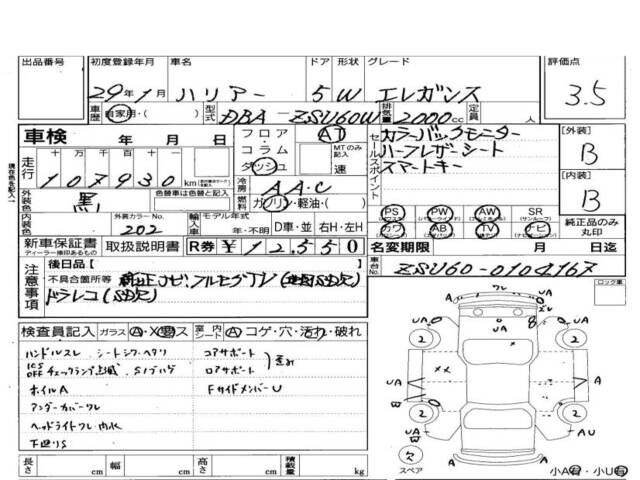 出品番号 初度登録年月 車名 ドア 形状 グレード 評価点
29年1月 ハリアー 5 W エレガンス 3.5
車歴 自家用・( ) 型式 DBA-ZSU60W 排気量 2000cc 定員 人
車検 年 月 日
フロア コラム ダッシュ AT MTのみ記入 速
セールスポイント カラーバックモニター
ハーフレザーシート
スマートキー
[外装] B
[内装] B
現在色を記入
走行 十万 万 千 百 十 一
107930 km
外装色 黒 色替車は色替と記入
冷房 AAC
燃料 ガソリン・軽油・( )
PS PW AW SR (サンルーフ)
カワ AB TV ナビ
純正品のみ丸印
内装色 外装カラーNo. 202 輸入車 モデル年式 年・不明 D車・並 右H・左H
新車保証書 取扱説明書 R券 ¥12.550
ディーラー捺印あるもの
名変期限 月 日迄
車台No. ZSU60-0104167
注意事項 後日品[ ]
不具合箇所等 純正ナビ、フルセグTV
ドラレコ(SD欠)
ロック車
検査員記入 ガラス A・X・ス 室内シート A コゲ・穴・汚れ・破れ
ハンドルスレ シートシワ・ヘタリ コアサポート
ICS OFF チェックランプ点滅 ロアサポート
ホイルA FサイドメンバーU
アンダーカバーワレ
ヘッドライトワレ・内水
下廻りS
長さ cm 幅 cm 高さ cm 積載量 kg
スペア
小A有・小U有